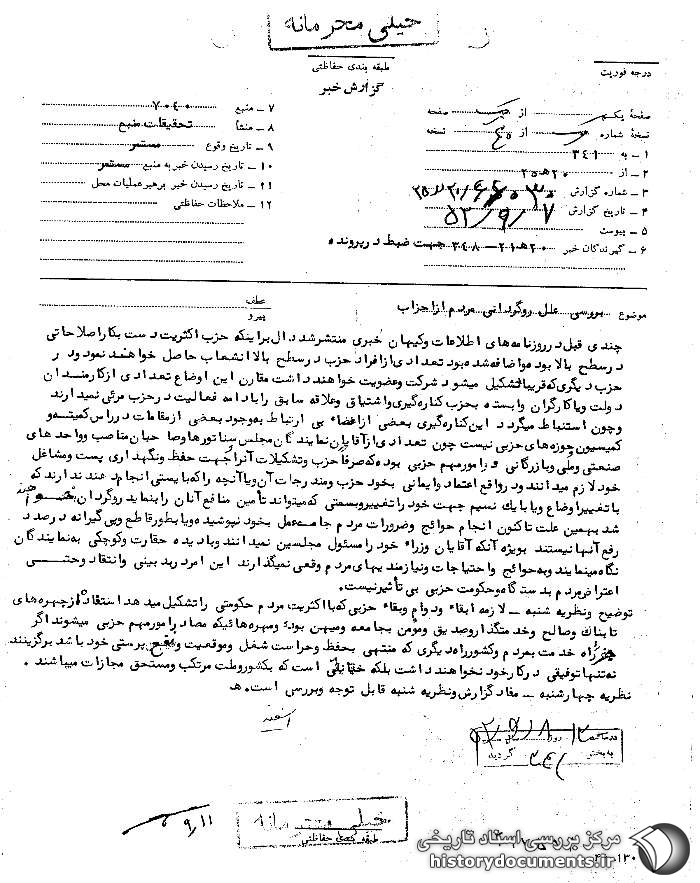 خیلی محرمانه
طبقه بندی حفاظتی
درجه فوریت
گزارش خبر
صفحهٔ یک از یک صفحه
نسخهٔ شماره از نسخه
۱ – به ۳۴۱
۲ – از ۲۰ ه‍ ۲۵
۳ – شماره گزارش
۴ – تاریخ گزارش ۵۳/۹/۷
۵ – پیوست
۶ – گیرندگان خبر ۲۰ ه‍ ۲۱ – ۳۴۸ جهت ضبط در پرونده
۷ – منبع ۷۰۴۰
۸ – منشأ تحقیقات منبع
۹ – تاریخ وقوع مستمر
۱۰ – تاریخ رسیدن خبر به منبع مستمر
۱۱ – تاریخ رسیدن خبر برهبر عملیات محل
۱۲ – ملاحظات حفاظتی
موضوع بررسی علل روگردانی مردم از احزاب
عطف
پیرو
چندی قبل در روزنامه های اطلاعات و کیهان خبری منتشر شد دال براینکه حزب اکثریت دست بکار اصلاحاتی
در سطح بالا بود و اضافه شده بود تعدادی از افراد حزب در سطح بالا انشعاب حاصل خواهند نمود و در
حزب دیگری که قریبا تشکیل میشود شرکت و عضویت خواهند داشت مقارن این اوضاع تعدادی از کارمندان
دولت و یا کارگران وابسته بحزب کناره گیری و اشتیاق و علاقه سابق را بادامه فعالیت در حزب مرئی نمیدارند
و چون استنباط میگردد این کناره گیری بعضی از اعضاء بی ارتباط به وجود بعضی از مقامات در راس کمیته و
کمیسیون و حوزه های حزبی نیست چون تعدادی از آقایان نمایندگان مجلس سناتورها و صاحبان مناصب و واحدهای
صنعتی و ملی و بازرگانی در امور مهم حزبی بوده که صرفاً حزب و تشکیلات آنرا جهت حفظ و نگهداری پست و مشاغل
خود لازم میدانند و در واقع اعتماد و ایمانی بخود حزب و مندرجات آن و یا آنچه را که بایستی انجام دهند ندارند که
با تغییر اوضاع و یا با یک نسیم جهت خود را تغییر و بسمتی که میتواند تأمین منافع آنان را بنماید روگردان خواهند
شد بهمین علت تاکنون انجام حوائج و ضرورات مردم جامه عمل بخود نپوشیده و یا بطور قاطع و پی گیرانه در صدد
رفع آنها نیستند بویژه آنکه آقایان وزراء خود را مسئول مجلسین نمیدانند و بادیده حقارت و کوچکی به نمایندگان
نگاه مینمایند و به حوائج و احتیاجات و نیازمندیهای مردم وقعی نمیگذارند این امر در بدبینی و انتقاد و حتی
اعتراض مردم بدستگاه و حکومت حزبی بی تأثیر نیست.
توضیح و نظریه شنبه – لازمه ابقاء و دوام و بقاء حزبی که با اکثریت مردم حکومتی را تشکیل میدهد استفاده از چهره های
تابناک و صالح و خدمتگذار و صدیق و مؤمن بجامعه و میهن بوده و مهره هائیکه مصادر امور مهم حزبی میشوند اگر
جز راه خدمت بمردم و کشور راه دیگری که منتهی بحفظ و حراست شغل و موقعیت و پرستی خود باشد برگزینند
نه تنها توفیقی در کار خود نخواهند داشت بلکه است که بکشور و ملت مرتکب و مستحق مجازات میباشند.
نظریه چهارشنبه – مفاد گزارش و نظریه شنبه قابل توجه و بررسی است. ه‍
به بخش ۳۴۱ گردید
۹/۱۱
خیلی محرمانه
طبقه بندی حفاظتی
مرکز بررسی اسناد تاریخی
historydocuments.ir